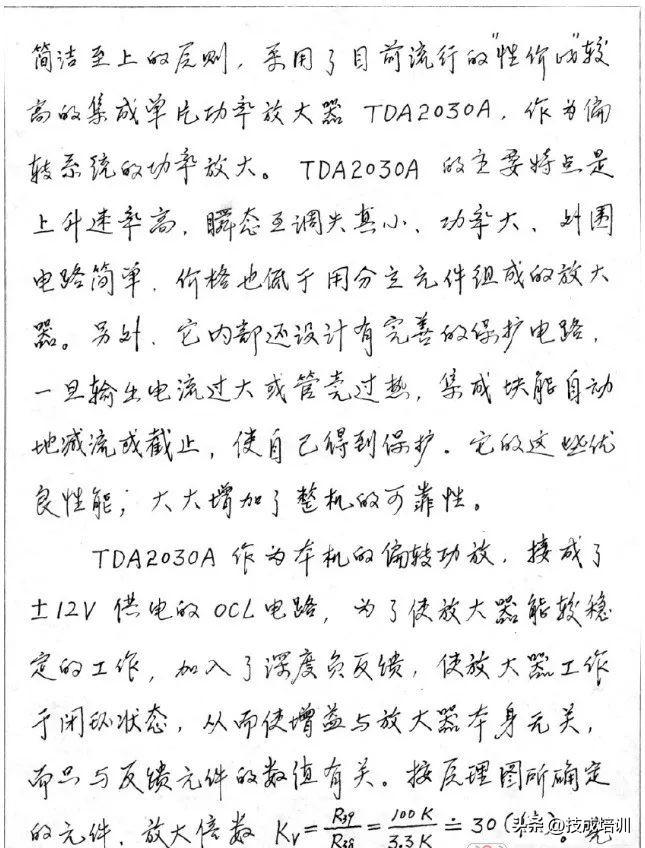 简洁至上的原则，采用了目前流行的"性价比"较
高的集成单片功率放大器 TDA2030A，作为偏
转系统的功率放大。TDA2030A 的主要特点是
上升速率高，瞬态互调失真小、功率大、外围
电路简单，价格也低于用分立元件组成的放大
器。另外，它内部还设计有完善的保护电路，
一旦输出电流过大或管壳过热，集成块能自动
地减流或截止，使自己得到保护。它的这些优
良性能；大大增加了整机的可靠性。
TDA2030A 作为本机的偏转功放，接成了
±12V 供电的 OCL 电路，为了使放大器能较稳
定的工作，加入了深度负反馈，使放大器工作
于闭环状态，从而使增益与放大器本身无关，
而只与反馈元件的数值有关。按原理图所确定
的元件，放大倍数 Kv = R39/R38 = 100K/3.3K ≐ 30 (
头条 @技成培训